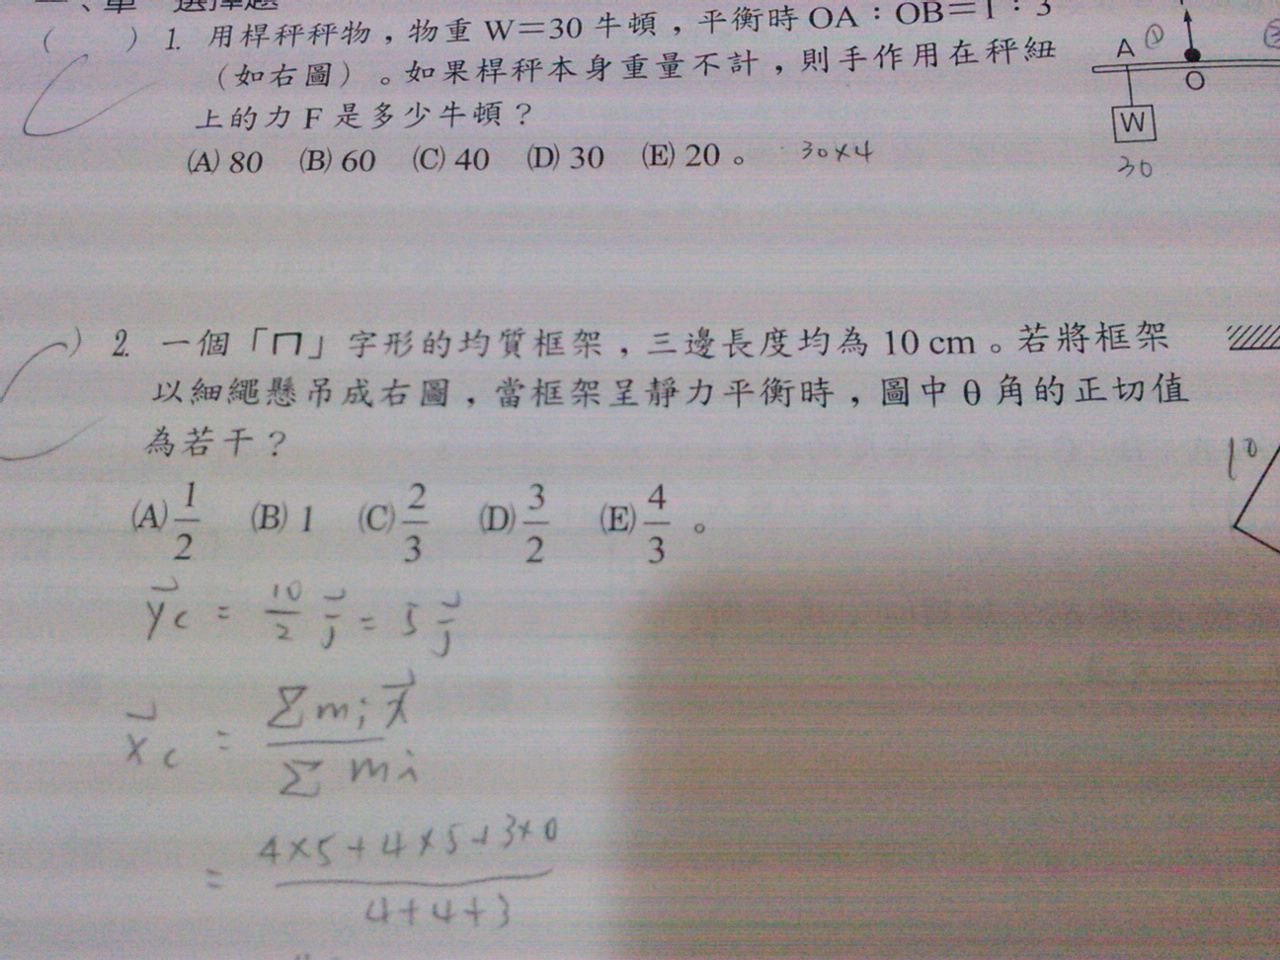 一、單 選擇題
( ) 1. 用桿秤秤物，物重 W＝30 牛頓，平衡時 OA：OB＝1：3
（如右圖）。如果桿秤本身重量不計，則手作用在秤紐
上的力 F 是多少牛頓？
(A) 80 (B) 60 (C) 40 (D) 30 (E) 20 。 30×4
A ①
O
W
30
) 2. 一個「ㄇ」字形的均質框架，三邊長度均為 10 cm。若將框架
以細繩懸吊成右圖，當框架呈靜力平衡時，圖中 θ 角的正切值
為若干？
10
(A) 1/2 (B) 1 (C) 2/3 (D) 3/2 (E) 4/3 。
yc = 10/2 j = 5 j
xc = Σmi x / Σ mi
= 4×5+4×5+3×0 / 4+4+3